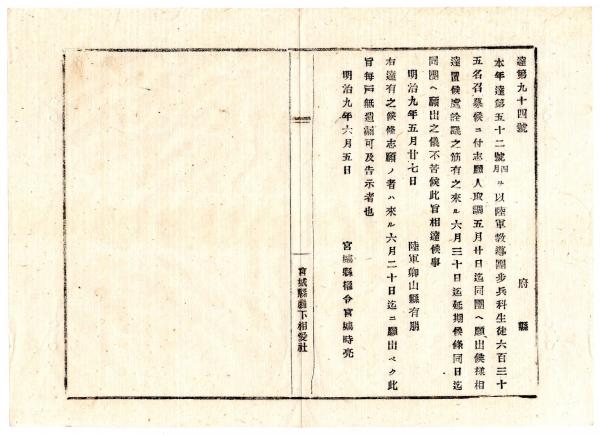 達第九十四號
府縣
本年達第五十二號四月ヲ以陸軍敎導團步兵科生徒六百三十
五名召募候ニ付志願人取調五月廿日迄同團ヘ願出候樣相
達置候處詮議之筋有之來ル六月三十日迄延期候條同日迄
同團ヘ願出之儀不苦候此旨相達候事
明治九年五月廿七日
陸軍卿山縣有朋
右達有之候條志願ノ者ハ來ル六月二十日迄ニ願出ベク此
旨每戶無遺漏可及告示者也
明治九年六月五日
宮城縣權令宮城時亮
宮城縣縣下相愛社